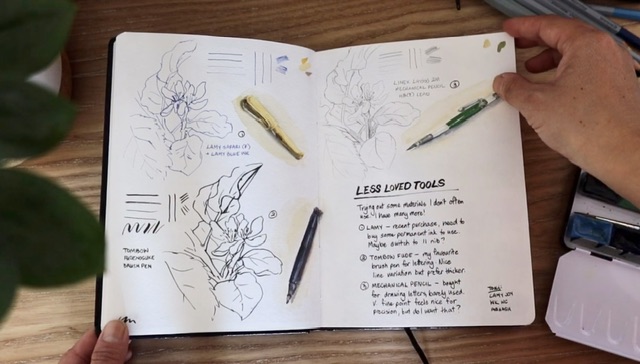 ①
LAMY SAFARI (F)
+ LAMY BLUE INK
②
TOMBOW
BRUSH PEN
③
MECHANICAL PENCIL
LESS LOVED TOOLS
Trying out some materials I don't often
use. I have many more!
① LAMY - recent purchase, need to
buy some permanent ink to use.
Maybe switch to
nib?
② TOMBOW FUDE - my favourite
brush pen for lettering. Nice
line variation but prefer thicker.
③ MECHANICAL PENCIL - bought
for drawing letters, barely used.
V. fine point feels nice for
precision, but do I want this?
LAMY JOY